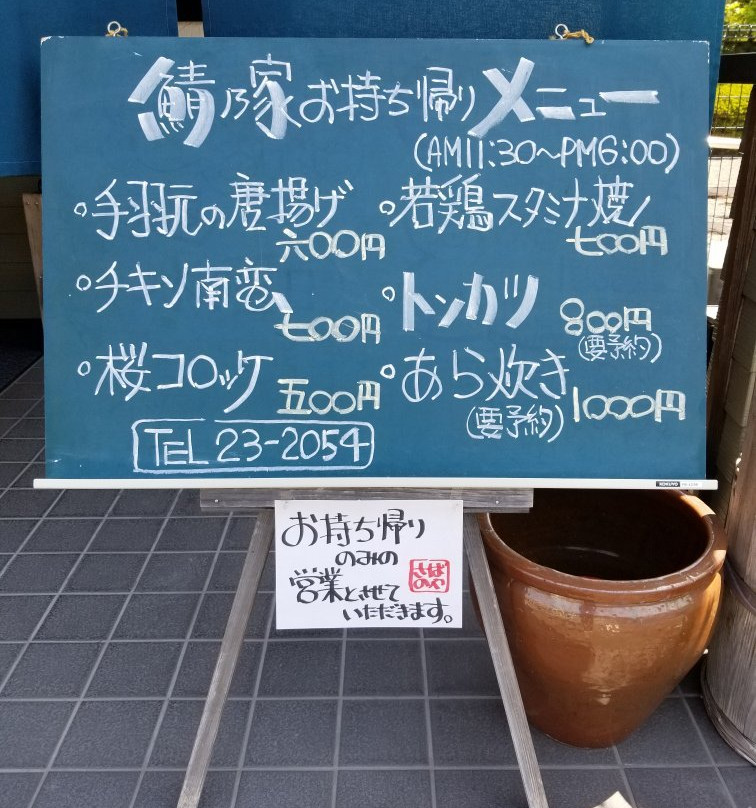 鯖乃家お持ち帰りメニュー
(AM11:30〜PM6:00)
・手羽元の唐揚げ
六〇〇円
・チキン南蛮
七〇〇円
・桜コロッケ
五〇〇円
・若鶏スタミナ焼
七〇〇円
・トンカツ
800円
(要予約)
・あら炊き
(要予約)
1000円
TEL 23-2054
KOKUYO
お持ち帰り
のみの
営業とさせて
いただきます。
さば
のや